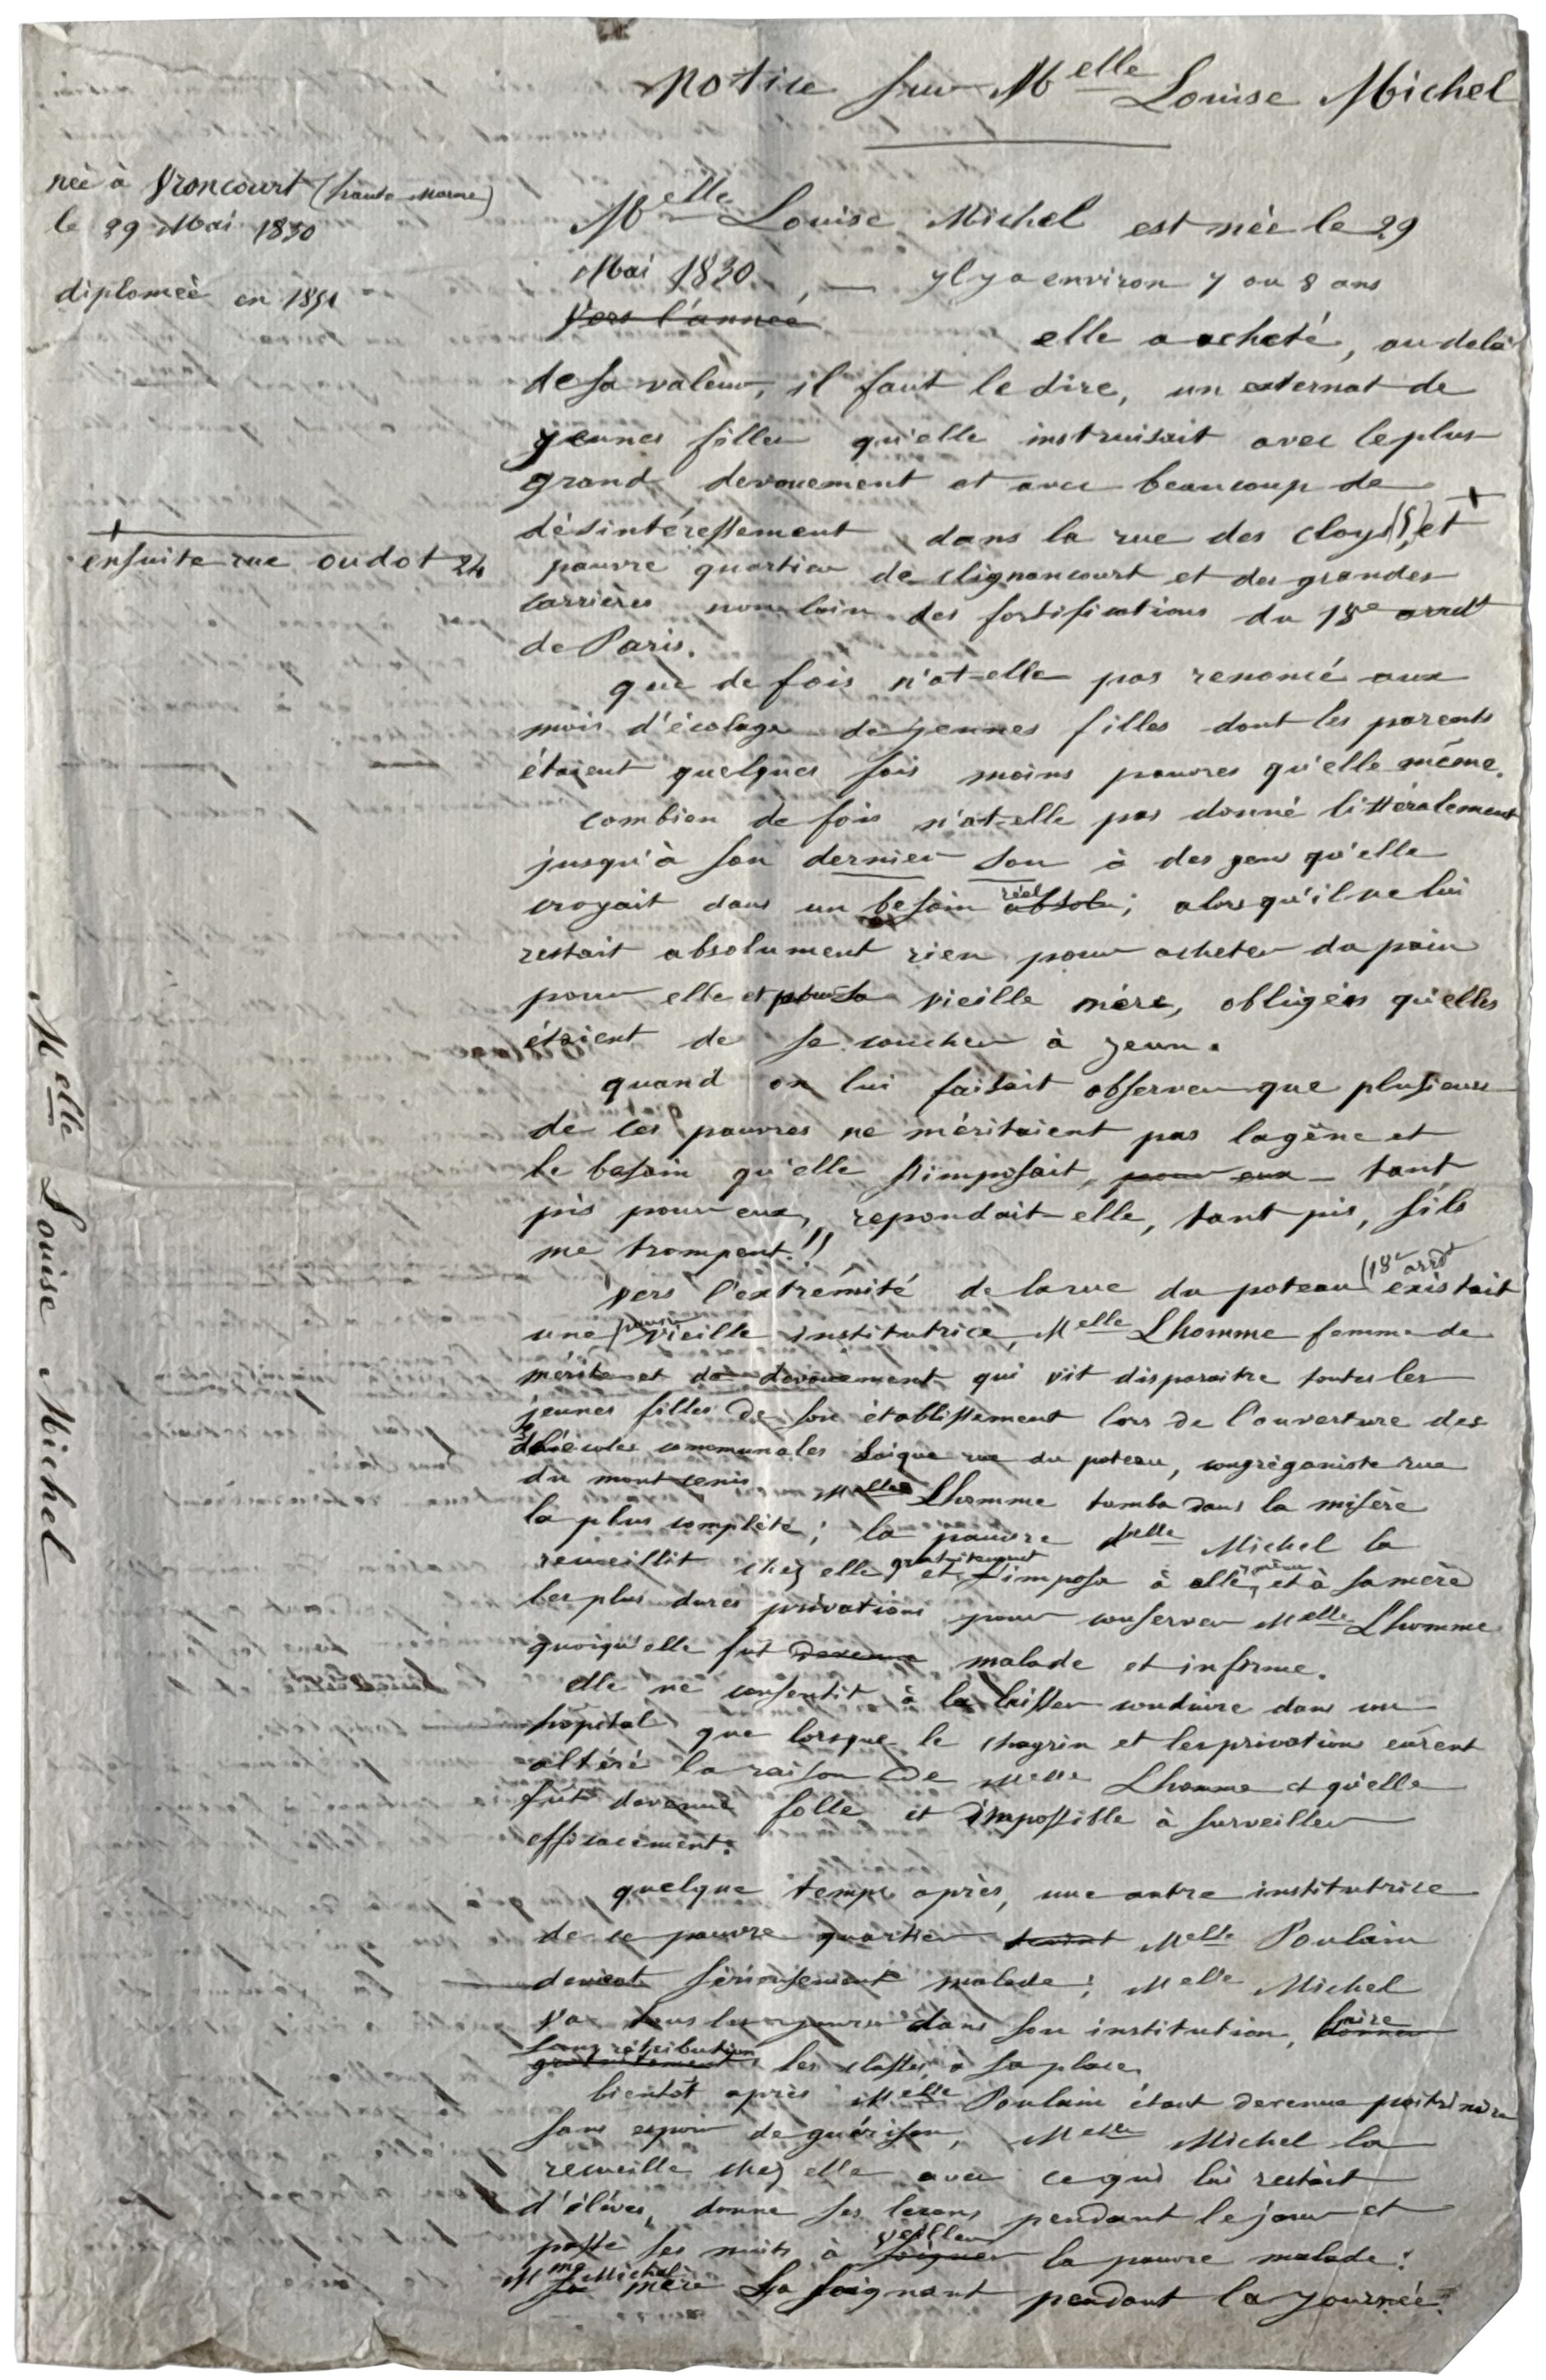 Notice sur Melle Louise Michel
née à Vroncourt (haute Marne)
le 29 Mai 1830
diplomeè en 1851
Melle Louise Michel est née le 29
Mai 1830, — Yl y a environ 7 ou 8 ans
Vers l'année
elle a acheté, au delà
de sa valeur, il faut le dire, un externat de
jeunes filles qu'elle instruisait avec le plus
grand devouement et avec beaucoup de
désintéressement dans la rue des Cloys et +
+
ensuite rue oudot 24
pauvre quartier de clignancourt et des grandes
carrières non loin des fortifications du 18e arrdt
de Paris.
que de fois n'at-elle pas renoncé aux
mois d'écolage de jeunes filles dont les parents
étaient quelques fois moins pauvres qu'elle même.
combien de fois n'at-elle pas donné littéralement
jusqu'à son dernier sou à des gens qu'elle
croyait dans un besoin absolu réel; alors qu'il ne lui
restait absolument rien pour acheter du pain
pour elle et pour sa vieille mère, obligées qu'elles
étaient de se coucher à jeun.
quand on lui faisait observer que plusieurs
de ces pauvres ne méritaient pas la gêne et
le besoin qu'elle s'imposait, pour eux — tant
pis pour eux, repondait-elle, tant pis, s'ils
me trompent!"
vers l'extrémité de la rue du poteau (18e arrdt existait
une pauvre vieille institutrice, Melle Lhomme femme de
mérite et de devouement qui vit disparaitre toutes les
jeunes filles de son établissement lors de l'ouverture des
écoles communales laïque rue du poteau, congréganiste rue
du mont cenis Melle Lhomme tomba dans la misère
la plus complète; la pauvre Melle Michel la
recueillit chez elle gratuitement et s'imposa à elle même et à sa mère
les plus dures privations pour conserver Melle Lhomme
quoiqu'elle fut devenue malade et infirme.
elle ne consentit à la laisser conduire dans un
hopital que lorsque le chagrin et les privations eurent
altéré la raison de Melle Lhomme et qu'elle
fût devenue folle et impossible à surveiller
efficacement.
quelque temps après, une autre institutrice
de ce pauvre quartier Melle Poulain
devient sérieusement malade; Melle Michel
va tous les jours dans son institution, donner faire
gratuitement sans rétribution les classes à sa place.
bientôt après Melle Poulain étant devenue poitrinaire
sans espoir de guérison, Melle Michel la
recueille chez elle avec ce qui lui restait
d'élèves, donne ses leçons pendant le jour et
passe ses nuits à soigner veiller la pauvre malade;
sa mère Mme Michel la soignant pendant la journée.
Melle Louise Michel